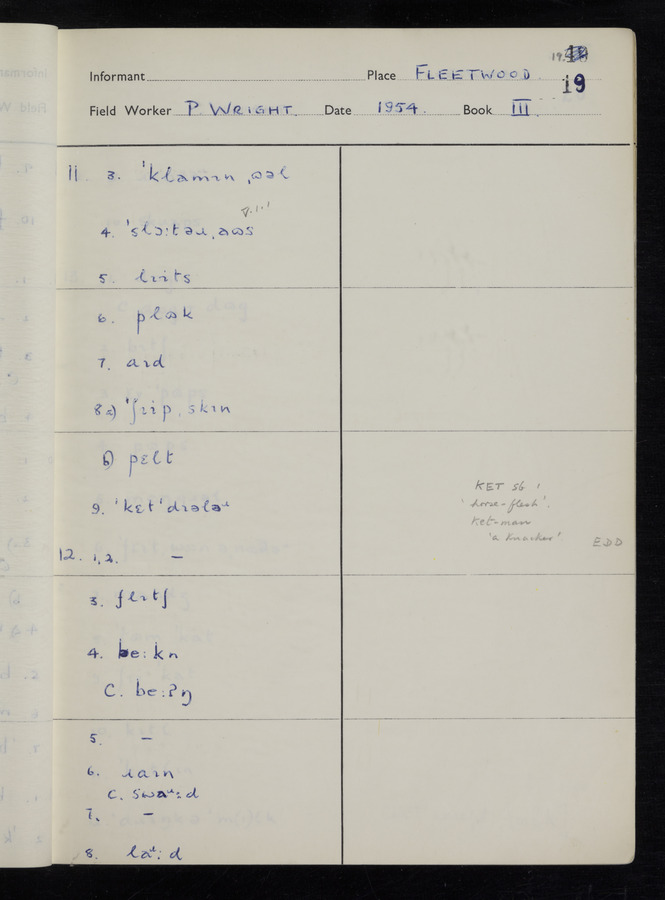 19.
Informant Place FLEETWOOD 19
Field Worker P. WRIGHT. Date 1954. Book III
11 3. ˈklamɪn ˌɷəl
4. ˈslɔːtəɹˌaɷs
5. lɪɪts
6. plɷk
7. aɪd
8a) ˈʃɪip ˌskɪn
b) pɛlt
9. ˈkɛtˈdɪələɹ
KET sb 1
'horse-flesh'.
Ket-man
'a knacker' EDD
12. 1, 2. —
3. flɪtʃ
4. beːkn
C. beːʔŋ
5. —
6. ɹaɪn
C. swaɹːd
7. —
8. laɹːd